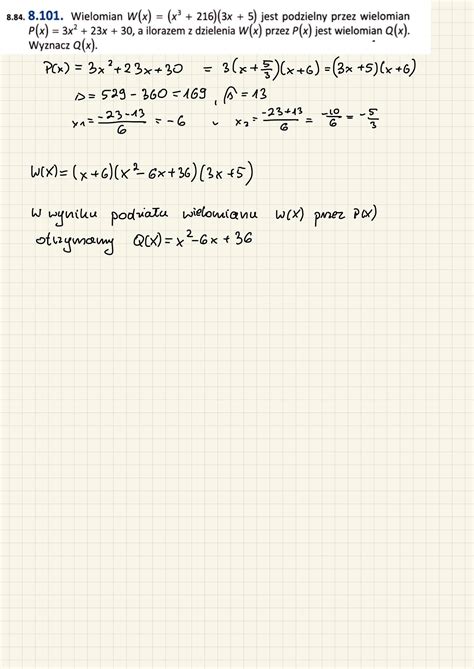 8.84. 8.101. Wielomian W(x) = (x³ + 216)(3x + 5) jest podzielny przez wielomian
P(x) = 3x² + 23x + 30, a ilorazem z dzielenia W(x) przez P(x) jest wielomian Q(x).
Wyznacz Q(x).
P(x) = 3x² + 23x + 30 = 3(x + 5/3)(x+6) = (3x + 5)(x+6)
Δ = 529 - 360 = 169 , √Δ = 13
x₁ = (-23-13)/6 = -6 ∨ x₂ = (-23+13)/6 = -10/6 = -5/3
W(x) = (x+6)(x² - 6x + 36)(3x + 5)
W wyniku podziału wielomianu W(x) przez P(x)
otrzymamy Q(x) = x² - 6x + 36